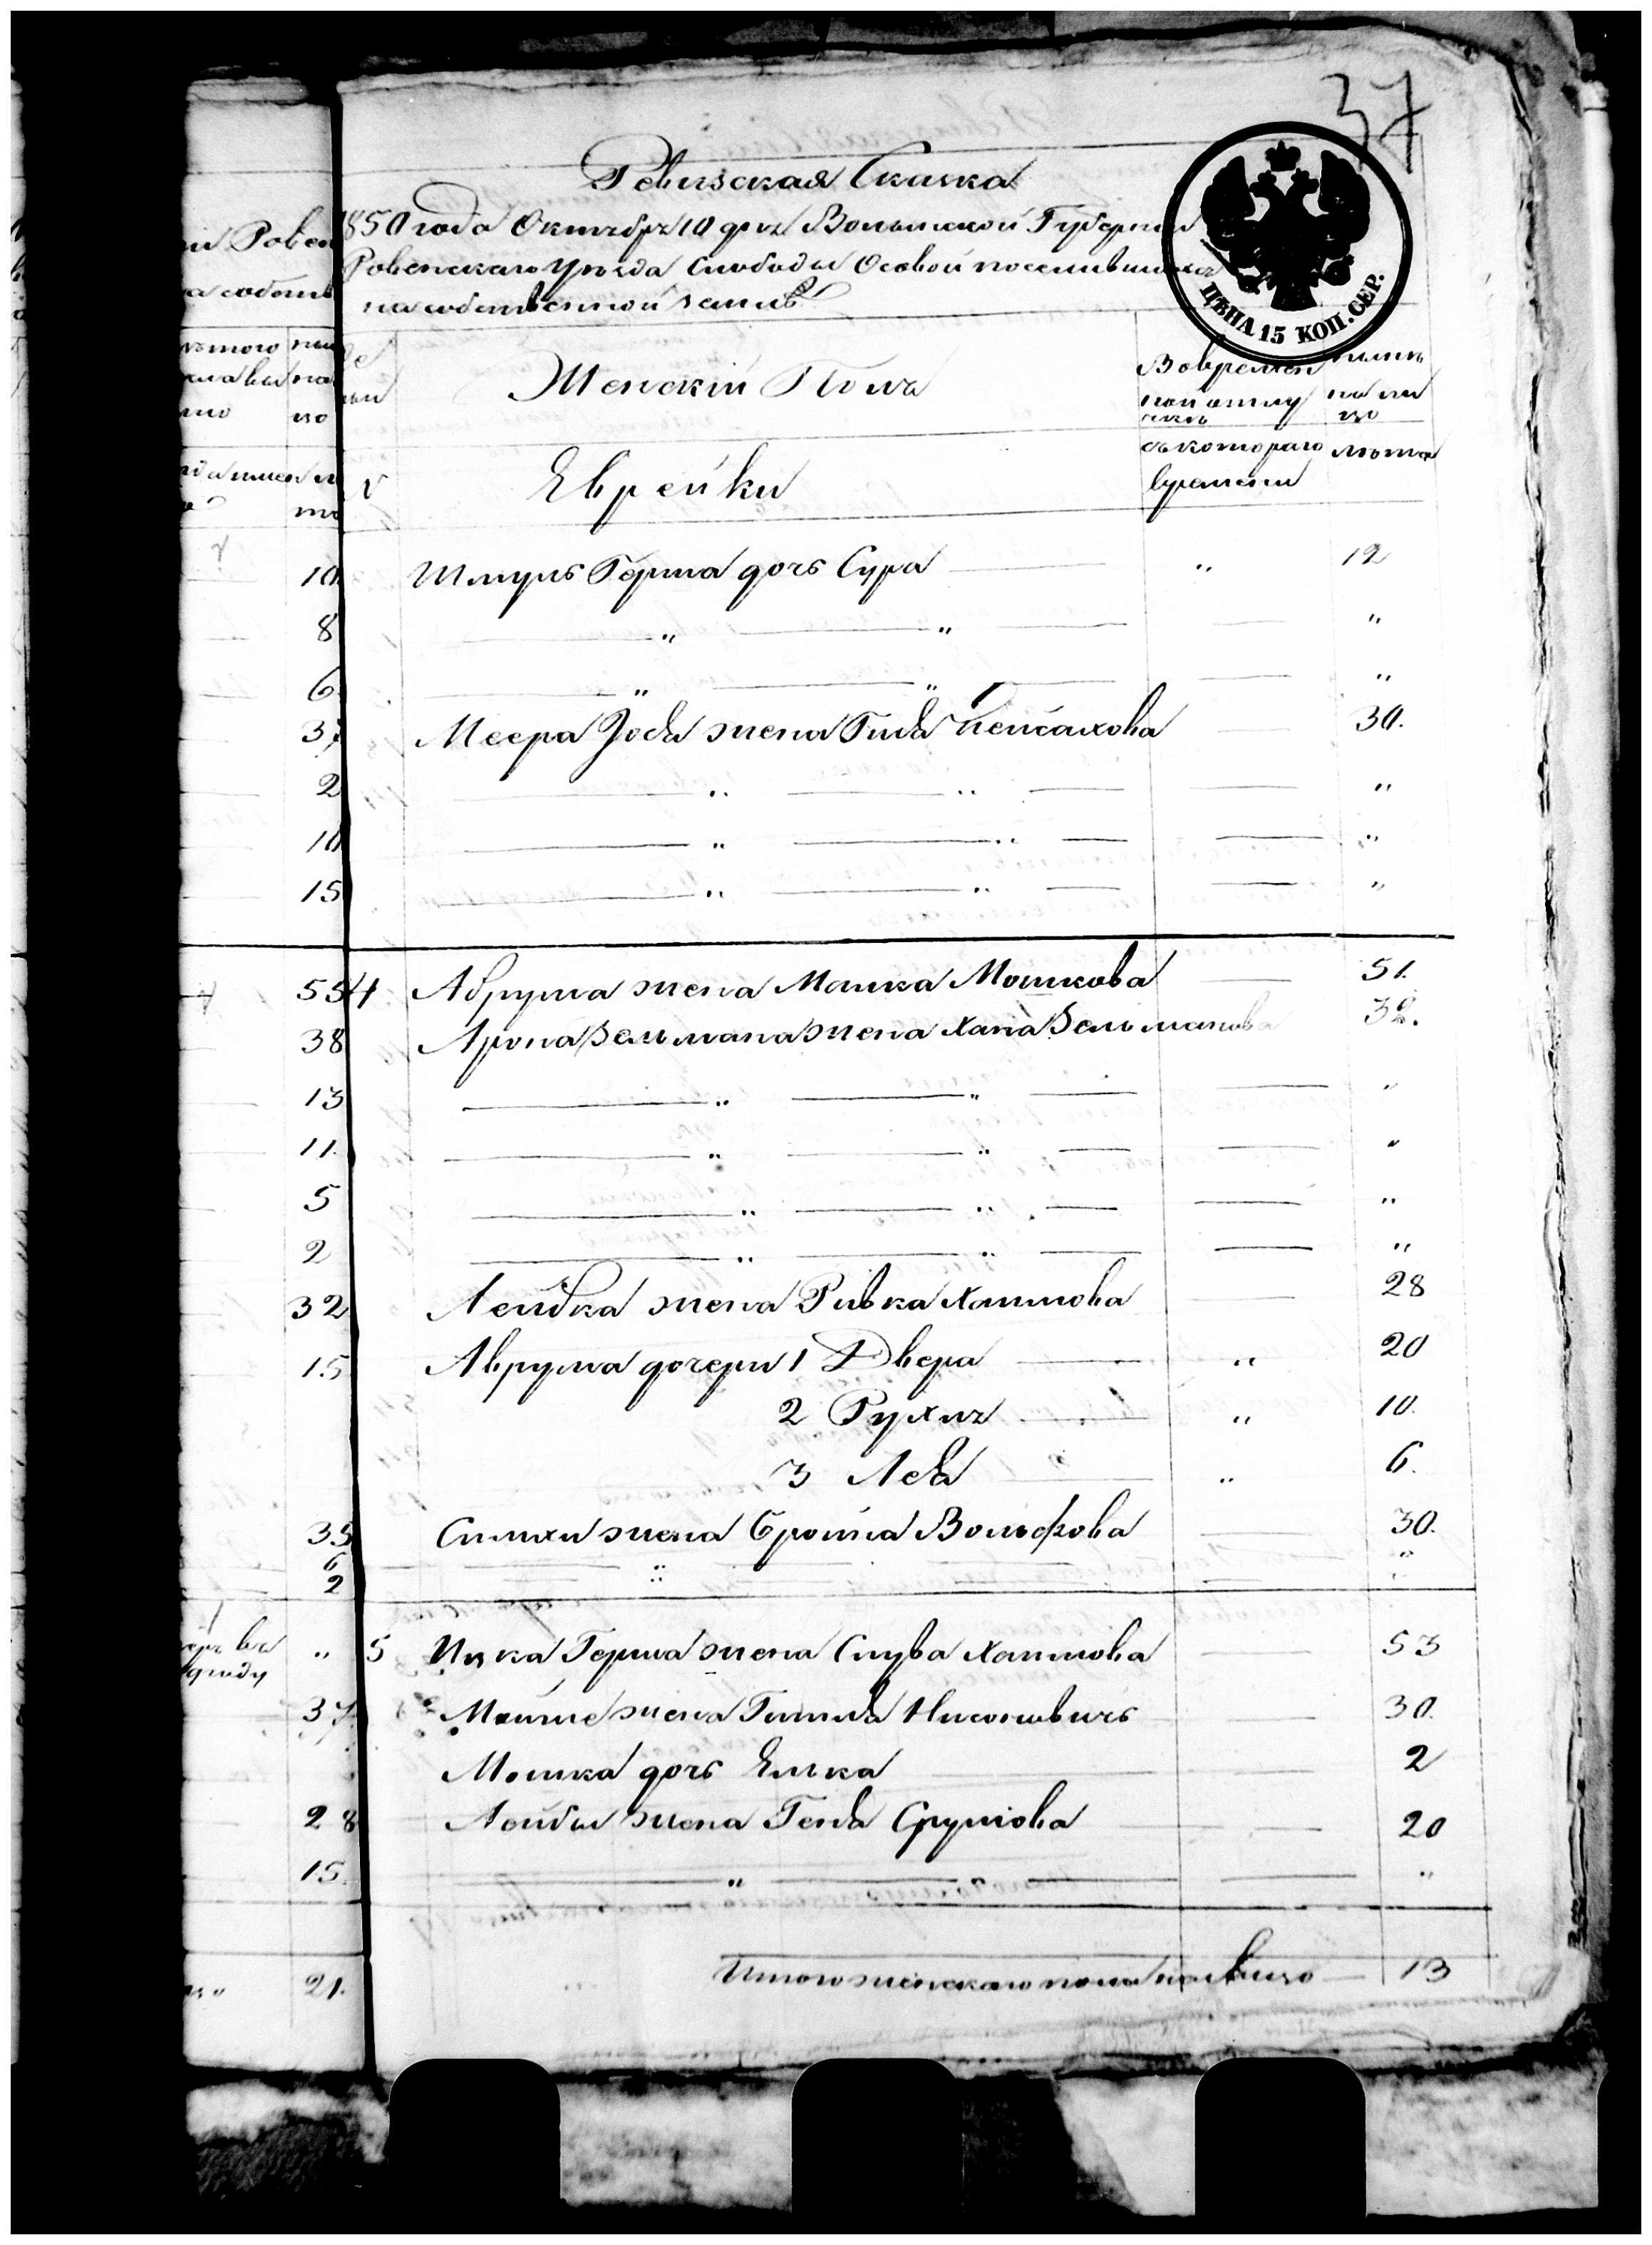 37
Ревизская Сказка
1850 года Октября 10 дня Волынской Губернии
Ровенского Уезда Слободы Осовой поселившихся
на собственной земле
ЦѢНА 15 КОП. СЕР.
Женскій Полъ
Во времен
ной отлу
чкѣ
ныне
на ли
цо
Еврейки
съ котораго
времени
лета
10 Шмуль Герша дочь Сура „ 12
8 „ „ „
6 „ „ „
37 Меера Йося жена Гитля Пейсахова 30.
2 „ „ „
10 „ „ „
15 „ „ „
55 4 Абрума жена Мошка Мошкова 51.
38 Арона Зельмана жена Хана Зельманова 32.
13 „ „ „
11. „ „ „
5 „ „ „
2 „ „ „
32 Лейбка жена Ривка Хаимова 28
15 Аврума дочери 1 Двера „ 20
2 Рухля „ 10.
3 Лея „ 6.
35 Симхи жена Бройна Вольфова 30.
6 „ „
2 „ „
„ 5 Ицка Герша жена Слува Хаимова 53
37 жена Гитля 30.
Мошка дочь Елька 2
28 Лейбы жена Геня Срулова 20
15. „ „ „
21. Итого женскаго пола на лицо 13